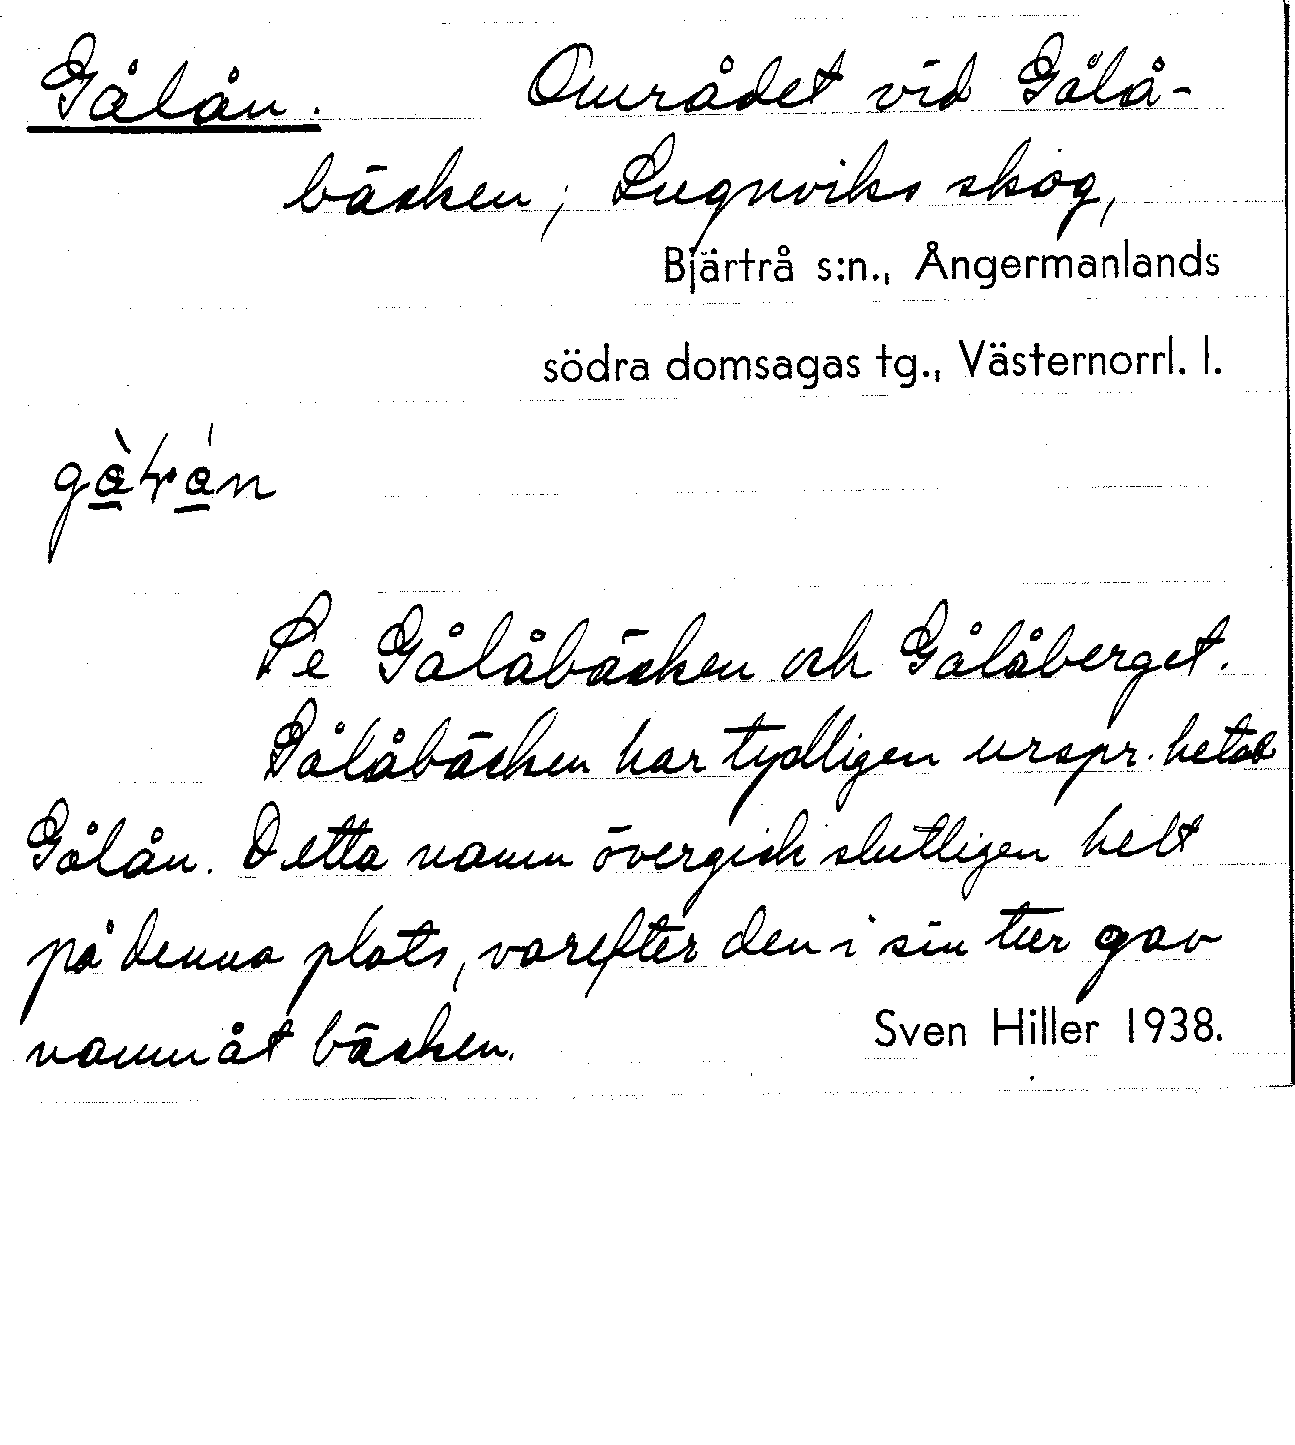 Gålån. Området vid Gålå-
bäcken, Lugnviks skog,
Bjärtrå s:n., Ångermanlands
södra domsagas tg., Västernorrl. l.
Se Gålåbäcken och Gålåberget.
Gålåbäcken har tydligen urspr. hetat
Gålån. Detta namn övergick slutligen helt
på denna plats, varefter den i sin tur gav
namn åt bäcken.
Sven Hiller 1938.